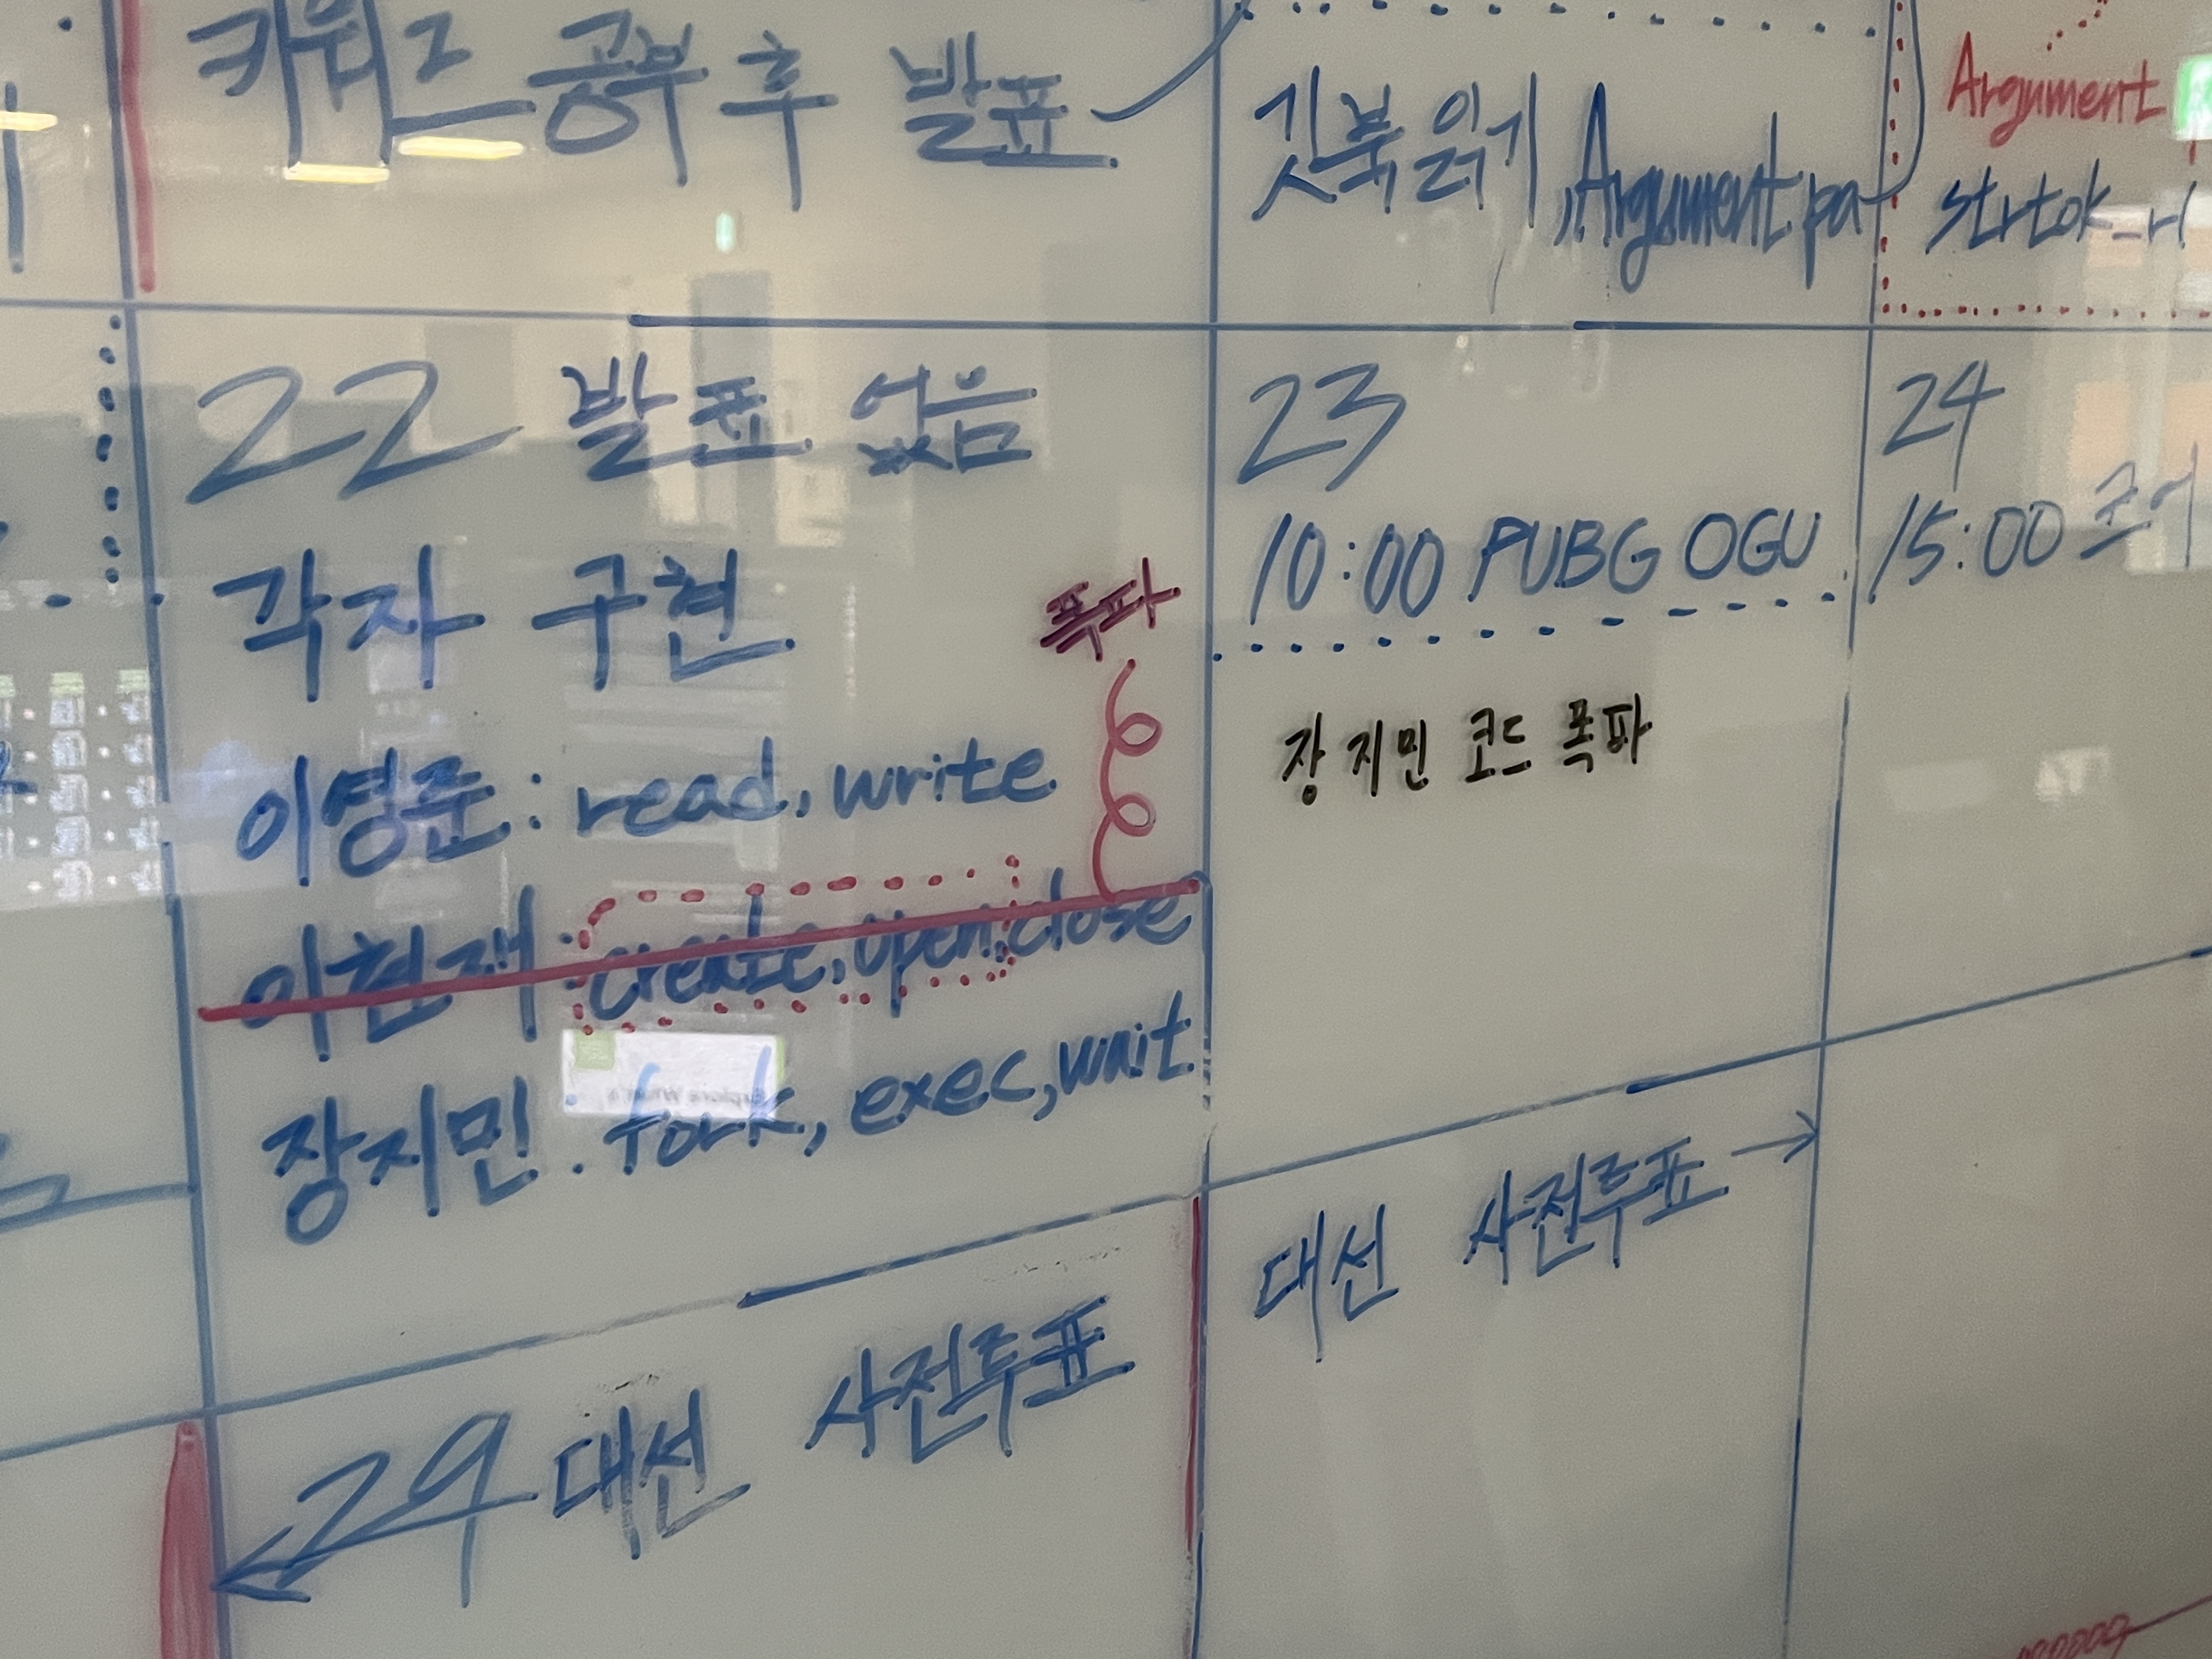 키워드 공부 후 발표
깃북 읽기, Argument pa
Argument
strtok_r(
22 발표 없음
각자 구현
폭파
이영준: read, write
이현재: create, open, close
장지민: fork, exec, wait
23
10:00 PUBG OGU
장지민 코드 폭파
24
15:00 코어
29 대선 사전투표
대선 사전투표 →